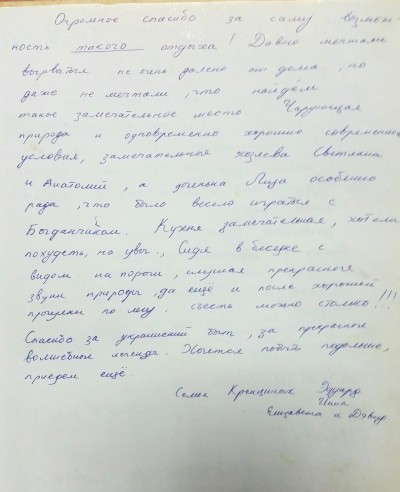 Огромное спасибо за саму возмож-
ность такого отдыха! Давно мечтали
вырваться не очень далеко от дома, но
даже не мечтали, что найдём
такое замечательное место. Чарующая
природа и одновременно хорошие современные
условия, замечательные хозяева Светлана
и Анатолий, а доченька Лиза особенно
рада, что было весело играться с
Богданчиком. Кухня замечательная, хотели
похудеть, но увы., Сидя в беседке с
видом на пороги, слушая прекрасные
звуки природы, да ещё и после хорошей
прогулки по лесу. съесть можно столько!!!
Спасибо за украинский быт, за прекрасные
волшебные легенды. Хочется побыть подольше,
приедем ещё.
Семья Эдуард
Инна
Елизавета и Дэвид.